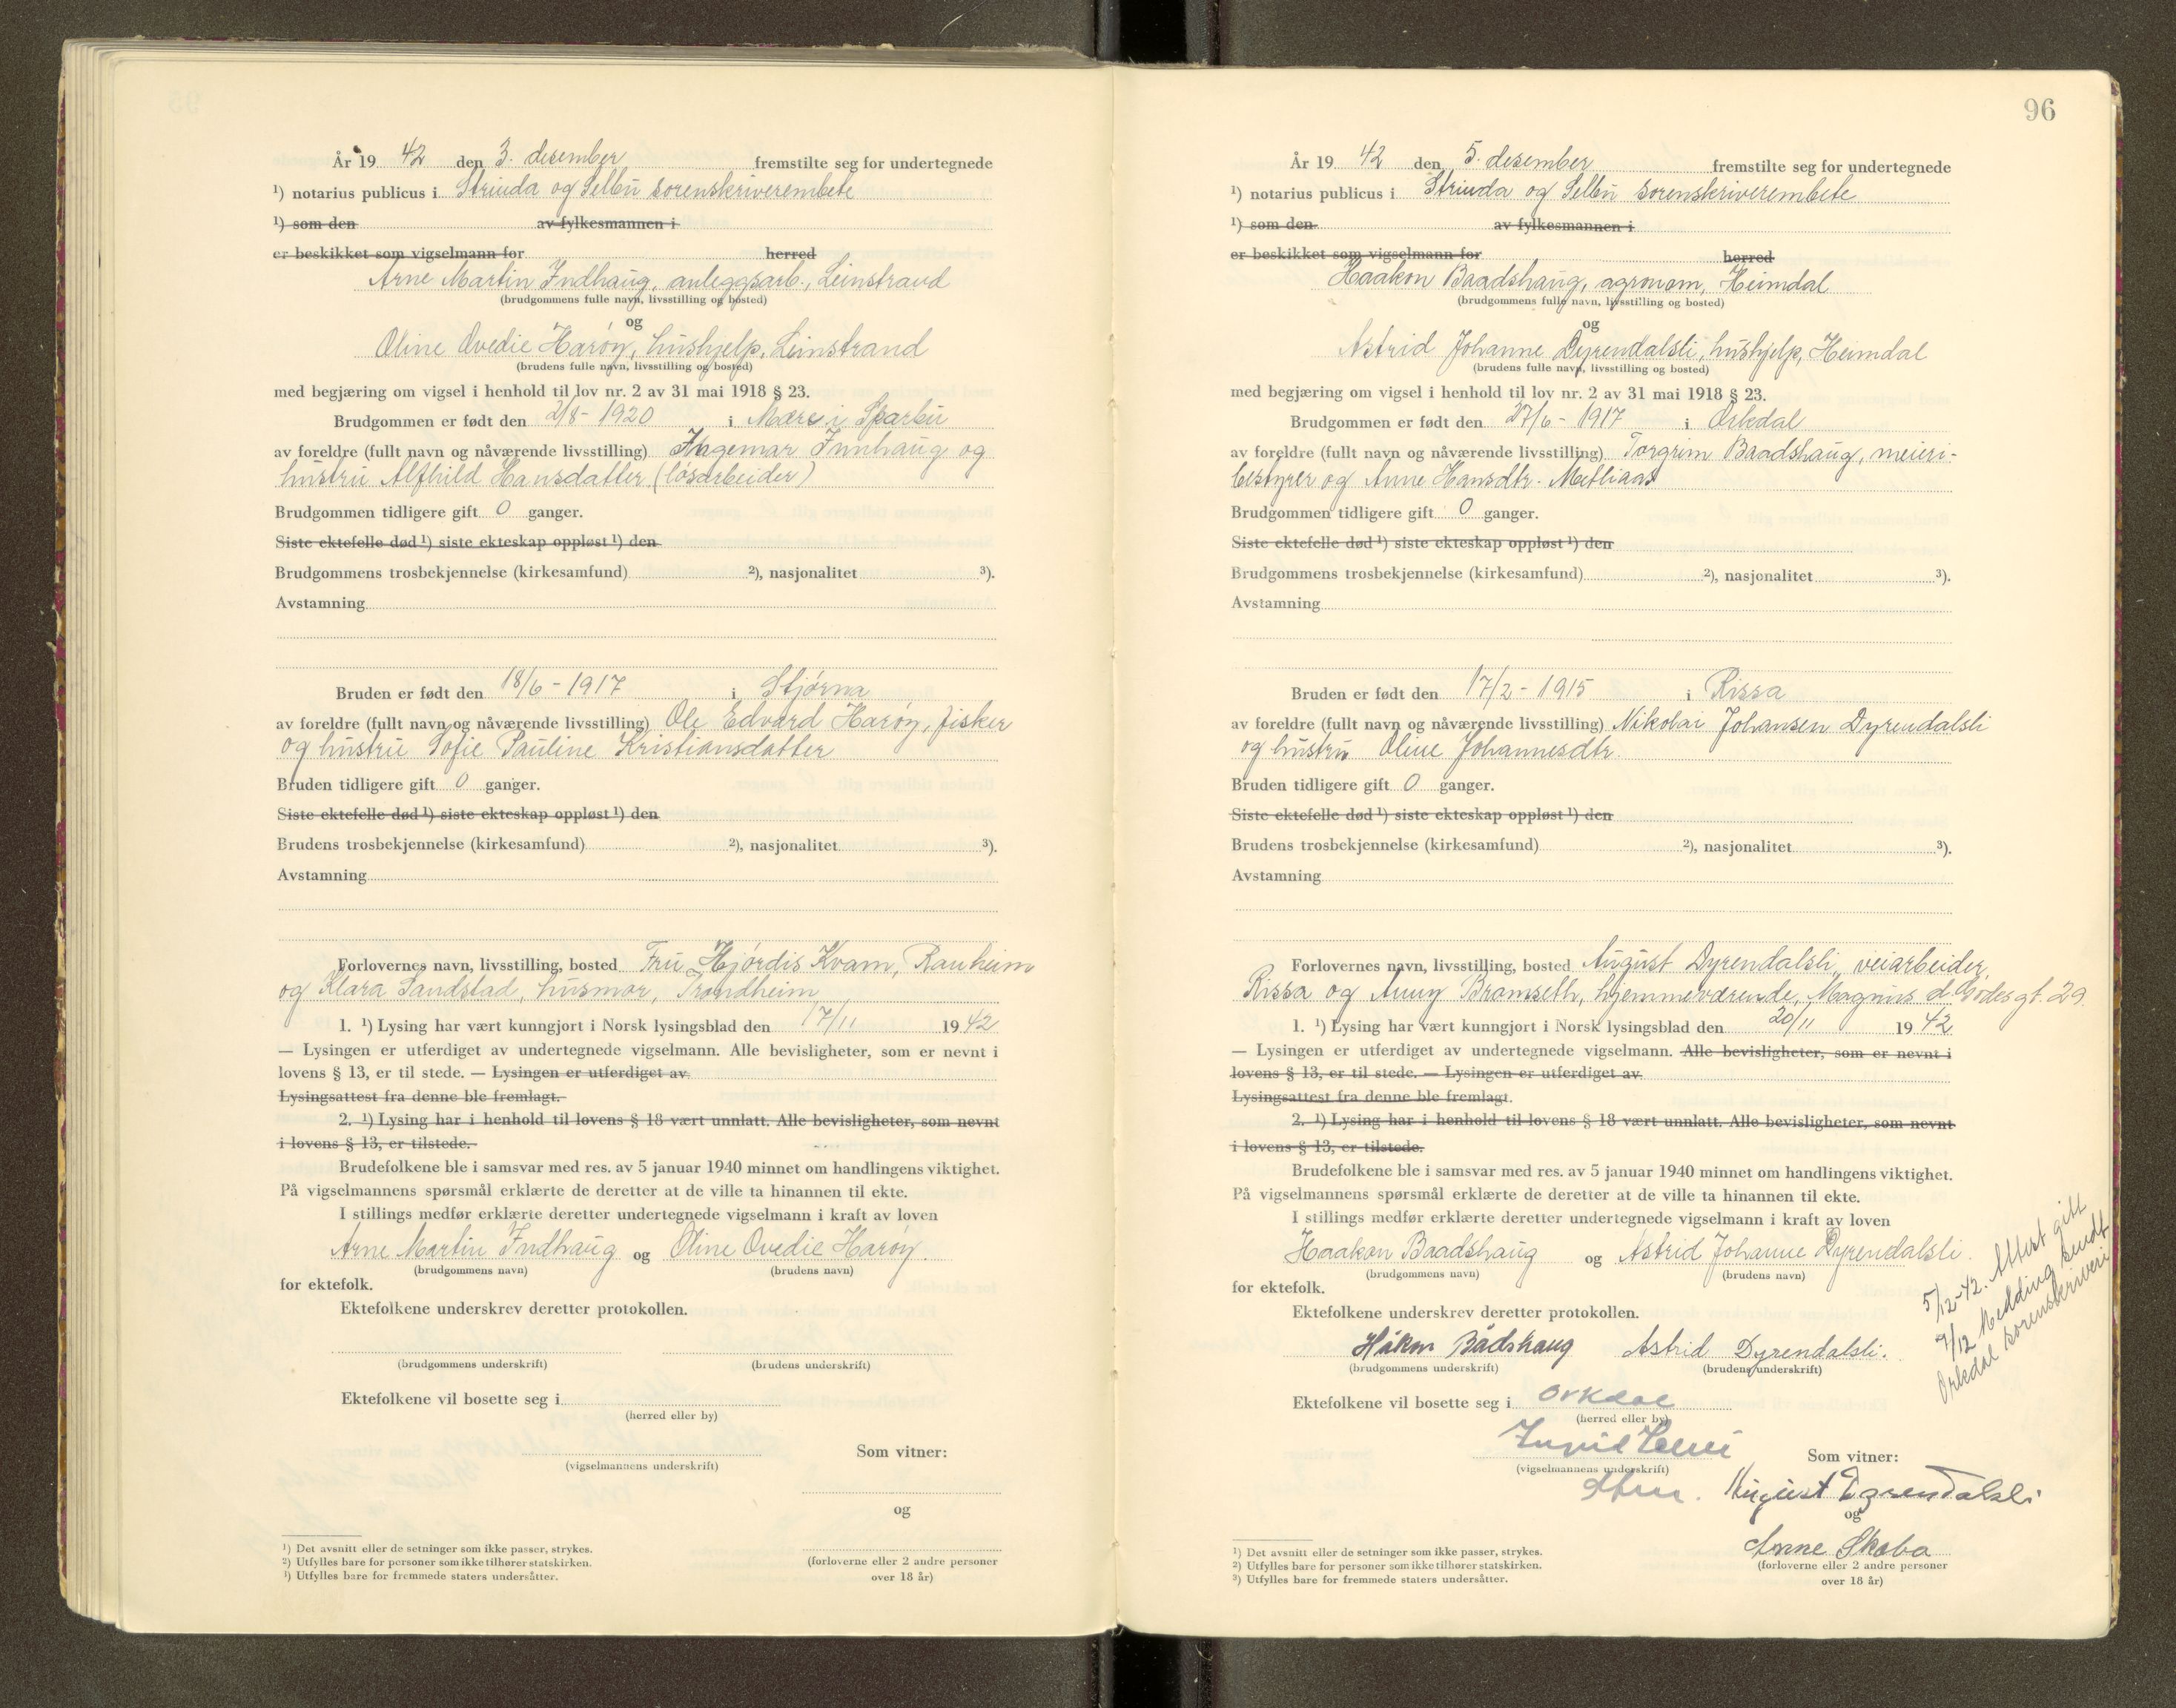 År 19 42 den 3. desember fremstilte seg for undertegnede
¹) notarius publicus i Strinda og Selbu sorenskriverembete
¹) som den av fylkesmannen i
er beskikket som vigselmann for herred
Arne Martin Indhaug, anleggsarb., Leinstrand
(brudgommens fulle navn, livsstilling og bosted)
og
Oline Ovedie Harøy, hushjelp, Leinstrand
(brudens fulle navn, livsstilling og bosted)
med begjæring om vigsel i henhold til lov nr. 2 av 31 mai 1918 § 23.
Brudgommen er født den 2/8 - 1920 i Mære i Sparbu
av foreldre (fullt navn og nåværende livsstilling) Ingemar Innhaug og
hustru Alfhild Hansdatter (løsarbeider)
Brudgommen tidligere gift 0 ganger.
Siste ektefelle død ¹) siste ekteskap oppløst ¹) den
Brudgommens trosbekjennelse (kirkesamfund) ²), nasjonalitet ³).
Avstamning
Bruden er født den 18/6 - 1917 i Stjørna
av foreldre (fullt navn og nåværende livsstilling) Ole Edvard Harøy, fisker
og hustru Sofie Pauline Kristiansdatter
Bruden tidligere gift 0 ganger.
Siste ektefelle død ¹) siste ekteskap oppløst ¹) den
Brudens trosbekjennelse (kirkesamfund) ²), nasjonalitet ³).
Avstamning
Forlovernes navn, livsstilling, bosted Fru Hjørdis Kvam, Ranheim
og Klara Sandstad, husmor, Trondheim
1. ¹) Lysing har vært kunngjort i Norsk lysingsblad den 17/11 19 42
— Lysingen er utferdiget av undertegnede vigselmann. Alle bevisligheter, som er nevnt i
lovens § 13, er til stede. — Lysingen er utferdiget av
Lysingsattest fra denne ble fremlagt.
2. ¹) Lysing har i henhold til lovens § 18 vært unnlatt. Alle bevisligheter, som nevnt
i lovens § 13, er tilstede.
Brudefolkene ble i samsvar med res. av 5 januar 1940 minnet om handlingens viktighet.
På vigselmannens spørsmål erklærte de deretter at de ville ta hinannen til ekte.
I stillings medfør erklærte deretter undertegnede vigselmann i kraft av loven
Arne Martin Indhaug og Oline Ovedie Harøy.
(brudgommens navn) (brudens navn)
for ektefolk.
Ektefolkene underskrev deretter protokollen.
(brudgommens underskrift) (brudens underskrift)
Ektefolkene vil bosette seg i
(herred eller by)
Som vitner:
(vigselmannens underskrift)
og
¹) Det avsnitt eller de setninger som ikke passer, strykes.
²) Utfylles bare for personer som ikke tilhører statskirken.
¹) Utfylles bare for fremmede staters undersåtter.
(forloverne eller 2 andre personer
over 18 år)
96
År 19 42 den 5. desember fremstilte seg for undertegnede
¹) notarius publicus i Strinda og Selbu sorenskriverembete
¹) som den av fylkesmannen i
er beskikket som vigselmann for herred
Haakon Baadshaug, agronom, Heimdal
(brudgommens fulle navn, livsstilling og bosted)
og
Astrid Johanne Dyrendalsli, hushjelp, Heimdal
(brudens fulle navn, livsstilling og bosted)
med begjæring om vigsel i henhold til lov nr. 2 av 31 mai 1918 § 23.
Brudgommen er født den 27/6 - 1917 i Orkdal
av foreldre (fullt navn og nåværende livsstilling) Torgrim Baadshaug, meieri-
bestyrer og Anne Hansdtr. Metliaas
Brudgommen tidligere gift 0 ganger.
Siste ektefelle død ¹) siste ekteskap oppløst ¹) den
Brudgommens trosbekjennelse (kirkesamfund) ²), nasjonalitet ³).
Avstamning
Bruden er født den 17/2 - 1915 i Rissa
av foreldre (fullt navn og nåværende livsstilling) Nikolai Johansen Dyrendalsli
og hustru Oline Johannesdtr.
Bruden tidligere gift 0 ganger.
Siste ektefelle død ¹) siste ekteskap oppløst ¹) den
Brudens trosbekjennelse (kirkesamfund) ²), nasjonalitet ³).
Avstamning
Forlovernes navn, livsstilling, bosted August Dyrendalsli, veiarbeider,
Rissa og Anny Bromseth, hjemmeværende, Magnus d. Godes gt. 29.
1. ¹) Lysing har vært kunngjort i Norsk lysingsblad den 20/11 19 42
— Lysingen er utferdiget av undertegnede vigselmann. Alle bevisligheter, som er nevnt i
lovens § 13, er til stede. — Lysingen er utferdiget av
Lysingsattest fra denne ble fremlagt.
2. ¹) Lysing har i henhold til lovens § 18 vært unnlatt. Alle bevisligheter, som nevnt
i lovens § 13, er tilstede.
Brudefolkene ble i samsvar med res. av 5 januar 1940 minnet om handlingens viktighet.
På vigselmannens spørsmål erklærte de deretter at de ville ta hinannen til ekte.
I stillings medfør erklærte deretter undertegnede vigselmann i kraft av loven
Haakon Baadshaug og Astrid Johanne Dyrendalsli.
(brudgommens navn) (brudens navn)
for ektefolk.
Ektefolkene underskrev deretter protokollen.
Håkon Bådshaug Astrid Dyrendalsli.
(brudgommens underskrift) (brudens underskrift)
Ektefolkene vil bosette seg i Orkdal
(herred eller by)
Som vitner:
(vigselmannens underskrift)
August Dyrendalsli
og
Anne Skabo
¹) Det avsnitt eller de setninger som ikke passer, strykes.
²) Utfylles bare for personer som ikke tilhører statskirken.
³) Utfylles bare for fremmede staters undersåtter.
(forloverne eller 2 andre personer
over 18 år)
5/12-42. Attest gitt
7/12 Melding sendt
Orkdal sorenskriveri